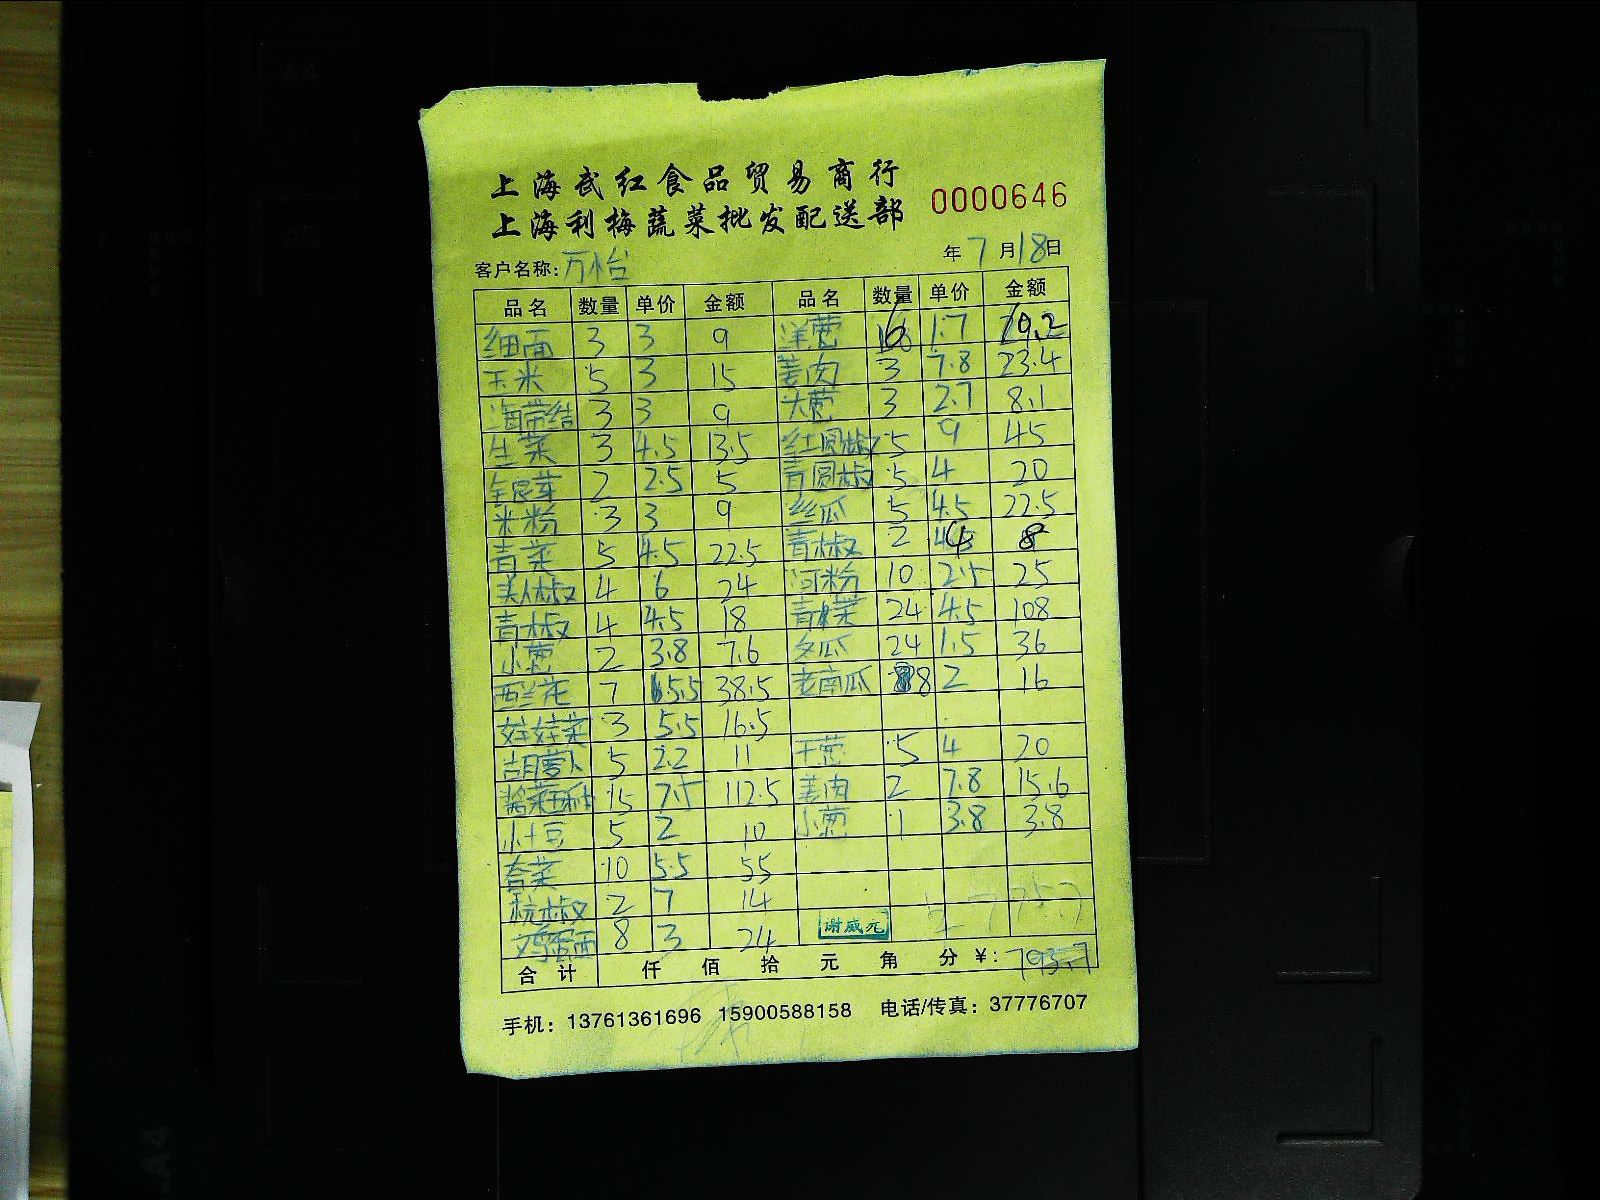 上海武红食品贸易商行
上海利梅蔬菜批发配送部
0000646
客户名称: 万怡 年 7 月 18 日
品名 数量 单价 金额 品名 数量 单价 金额
细面 3 3 9 洋葱 16 1.7
玉米 5 3 15 姜肉 3 7.8 23.4
海带结 3 3 9 大葱 3 2.7 8.1
生菜 3 4.5 13.5 红圆椒 5 9 45
银芽 2 2.5 5 青圆椒 5 4 20
米粉 3 3 9 丝瓜 5 4.5 22.5
青菜 5 4.5 22.5 青椒 2 4 8
美人椒 4 6 24 河粉 10 2.5 25
青椒 4 4.5 18 青梗菜 24 4.5 108
小葱 2 3.8 7.6 冬瓜 24 1.5 36
西兰花 7 5.5 38.5 老南瓜 8 2 16
娃娃菜 3 5.5 16.5
胡萝卜 5 2.2 11 干葱 5 4 20
15 7.5 112.5 姜肉 2 7.8 15.6
5 2 10 小葱 1 3.8 3.8
10 5.5 55
杭椒 2 7 14
鸡蛋面 8 3 24 谢威元
合计 仟 佰 拾 元 角 分 ¥: 793.7
手机: 13761361696 15900588158 电话/传真: 37776707